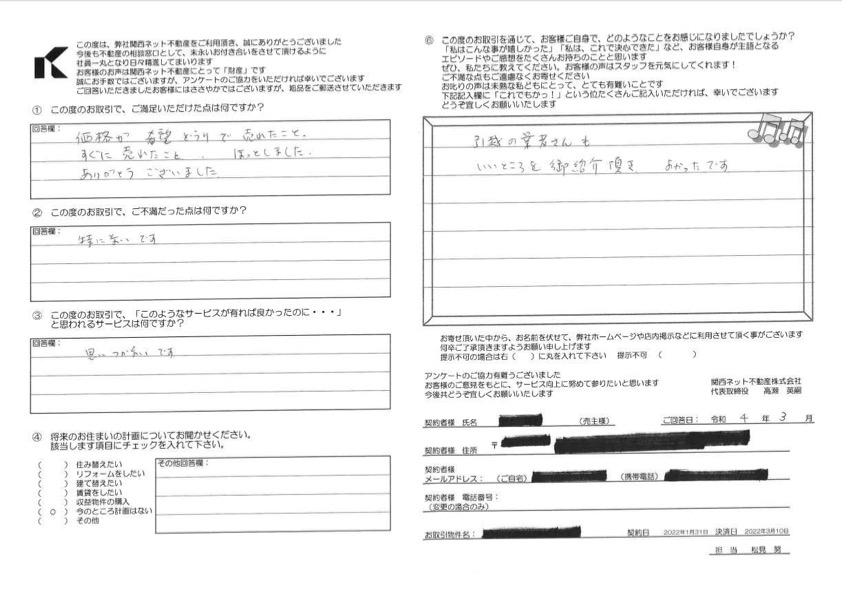 この度は、弊社関西ネット不動産をご利用頂き、誠にありがとうございました
今後も不動産の相談窓口として、末永いお付き合いをさせて頂けるように
社員一丸となり日々精進してまいります
お客様のお声は関西ネット不動産にとって「財産」です
誠にお手数ではございますが、アンケートのご協力をいただければ幸いでございます
ご回答いただきましたお客様にはささやかではございますが、粗品をご郵送させていただきます
① この度のお取引で、ご満足いただけた点は何ですか？
回答欄：
価格が 希望どうりで 売れたこと。
すぐに 売れたこと 、 ほっとしました。
ありがとう ございました
② この度のお取引で、ご不満だった点は何ですか？
回答欄：
特に ない です
③ この度のお取引で、「このようなサービスが有れば良かったのに・・・」
と思われるサービスは何ですか？
回答欄：
思い つかない です
④ 将来のお住まいの計画についてお聞かせください。
該当します項目にチェックを入れて下さい。
（　　） 住み替えたい
（　　） リフォームをしたい
（　　） 建て替えたい
（　　） 賃貸をしたい
（　　） 収益物件の購入
（ ○ ） 今のところ計画はない
（　　） その他
その他回答欄：
⑥ この度のお取引を通じて、お客様ご自身で、どのようなことをお感じになりましたでしょうか？
「私はこんな事が嬉しかった」「私は、これで決心できた」など、お客様自身が主語となる
エピソードやご感想をたくさんお持ちのことと思います
ぜひ、私たちに教えてください。お客様の声はスタッフを元気にしてくれます！
ご不満な点もご遠慮なくお寄せください
お叱りの声は未熟な私どもにとって、とても有難いことです
下記記入欄に「これでもかっ！」という位たくさんご記入いただければ、幸いでございます
どうぞ宜しくお願いいたします
引越の業者さんも
いいところを 御紹介頂き よかったです
お寄せ頂いた中から、お名前を伏せて、弊社ホームページや店内掲示などに利用させて頂く事がございます
何卒ご了承頂きますようお願い申し上げます
提示不可の場合は右（　）に丸を入れて下さい　提示不可（　　）
アンケートのご協力有難うございました
お客様のご意見をもとに、サービス向上に努めて参りたいと思います
今後共どうぞ宜しくお願いいたします
関西ネット不動産株式会社
代表取締役　高瀬　英嗣
契約者様 氏名　（売主様）　ご回答日： 令和 4 年 3 月
契約者様 住所　〒
契約者様
メールアドレス：（ご自宅）　（携帯電話）
契約者様 電話番号：
（変更の場合のみ）
お取引物件名：　契約日 2022年1月31日 決済日 2022年3月10日
担 当 松見 努